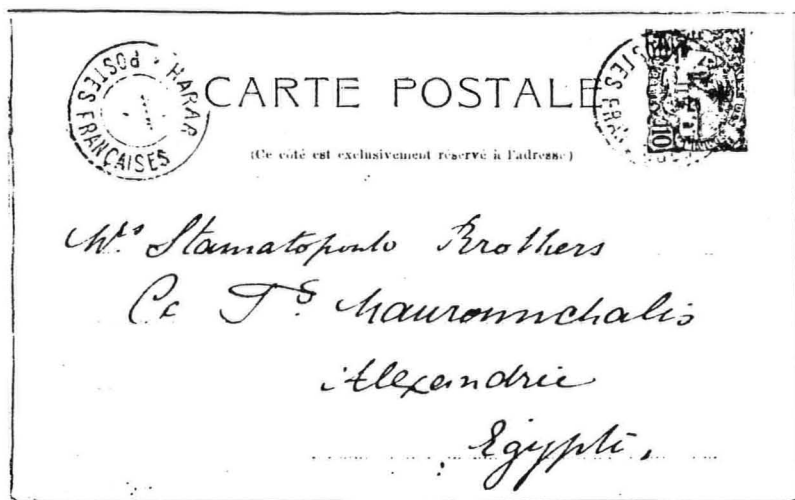 HARAR
POSTES FRANÇAISES
CARTE POSTALE
(Ce côté est exclusivement réservé à l'adresse)
10
Mrs Stamatopoulo Brothers
Alexandrie
Egypte,